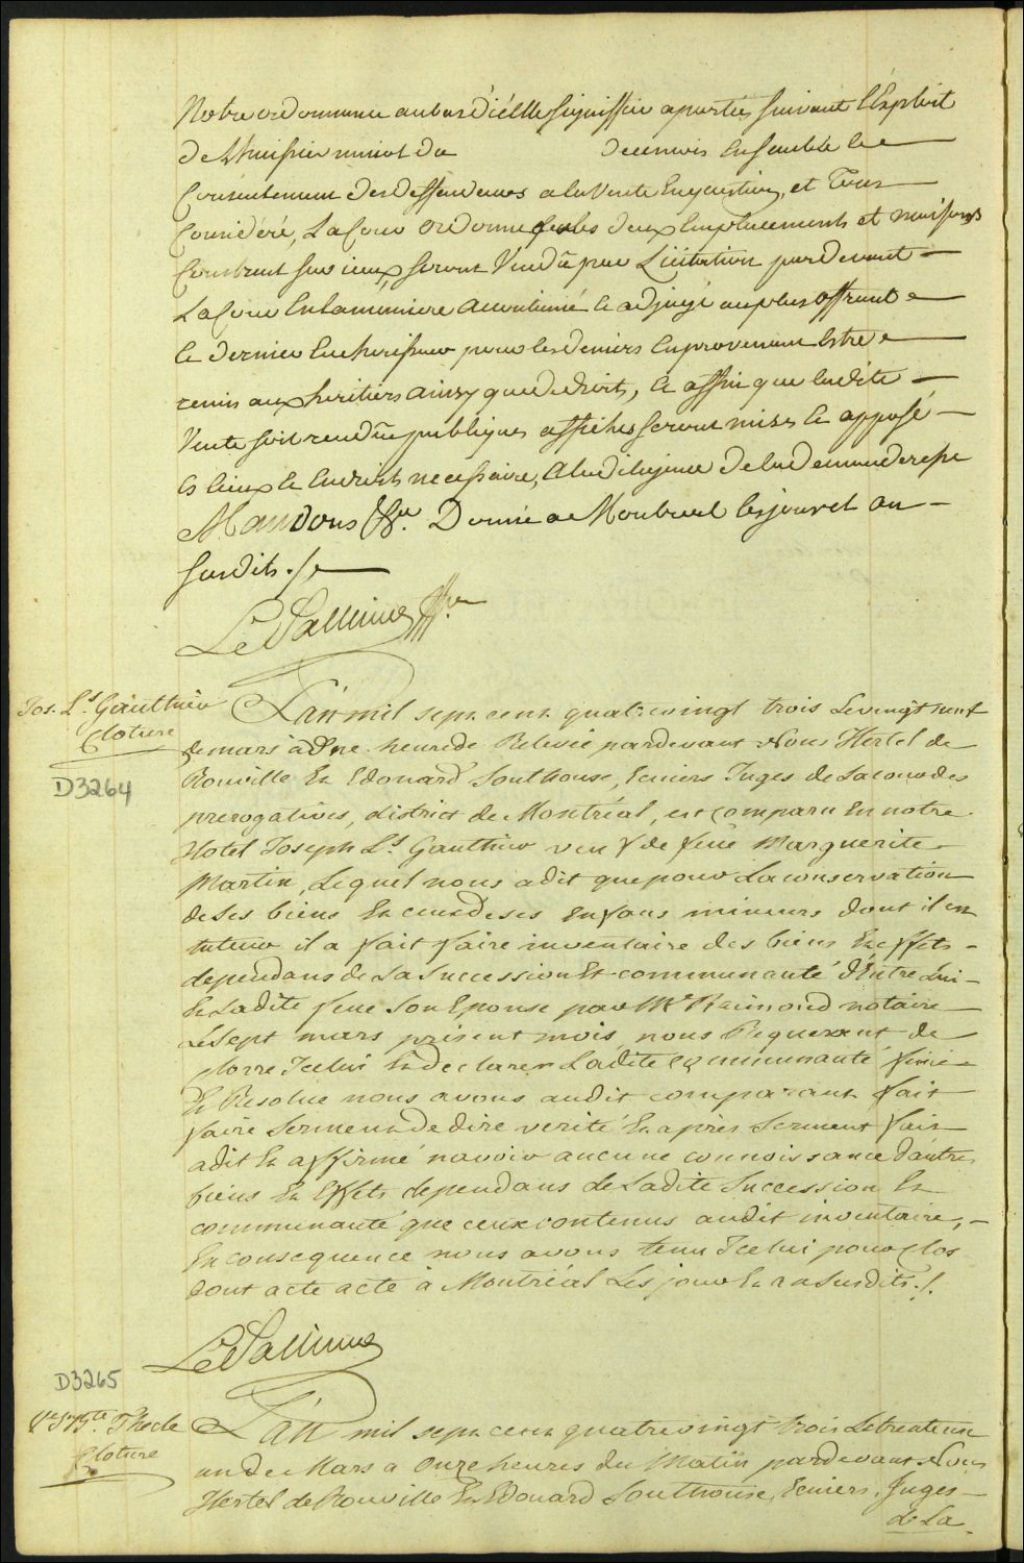 Notre ordonnance au bas d'icelle signiffiée aparties suivant l'Exploit
de L'huissier miniot du decemois Ensemble le
Consentement des deffendeurs a la Vente En question, et Tout
Consideré, La Cour ordonne que les deux Emplacements et maisons
Construit sur iceux seront Vendû par Licitation pardevant
La Cour En la maniere accoutumé et adjugé au plus offrant
et dernier Encherisseur pour les deniers En provenant Estre
remis aux heritiers ainsy que de droit, et affin que ladite
Vente soit rendûe publiques affiches seront mises et apposé
Es lieux et Endroits necessaire, a la diligence de la demanderesse
Mandons &ca. Donné a Montreal les jour et an
susdits ./.
LePallieur Gffier
Jos. Ls. Gauthier
Cloture
D3264
L'an mil sept cent quatrevingt trois Le vingt neuf
de mars à une heure de Relevée pardevant Nous Hertel de
Rouville Et Edouard Southouse, Ecuiers Juges de La cour des
prerogatives, district de Montréal, est comparu En notre
Hotel Joseph Ls. Gauthier veuf de feüe Marguerite
Martin, Lequel nous a dit que pour La conservation
de Ses biens Et ceux de ses Enfans mineurs dont il est
tuteur il a fait faire inventaire des biens Et effets
dependans de La Succession Et communauté d'Entre Lui
Et Ladite feue Son Epouse par Mr Raimond notaire
Le Sept mars présent mois, nous Requerant de
clorre Icelui Et declarer Ladite communauté finie
Et Resolue nous avons audit comparant fait
faire Serment de dire verité Et après Serment fait
a dit Et affirmé n'avoir aucune connoissance d'autres
biens Et Effets dependans de Ladite Succession Et
communauté que ceux contenus audit inventaire,
En consequence nous avons tenu Icelui pour clos
dont acte acte à Montréal Les jour Et an Susdits ./.
LePallieur
D3265
Ve J. Bte. Thecle
Cloture
L'an mil sept cent quatrevingt trois Le trente une
un de Mars a Onze heures du Matin pardevant Nous
Hertel de Rouville Et Edouard Southouse, Ecuiers, Juges
de La